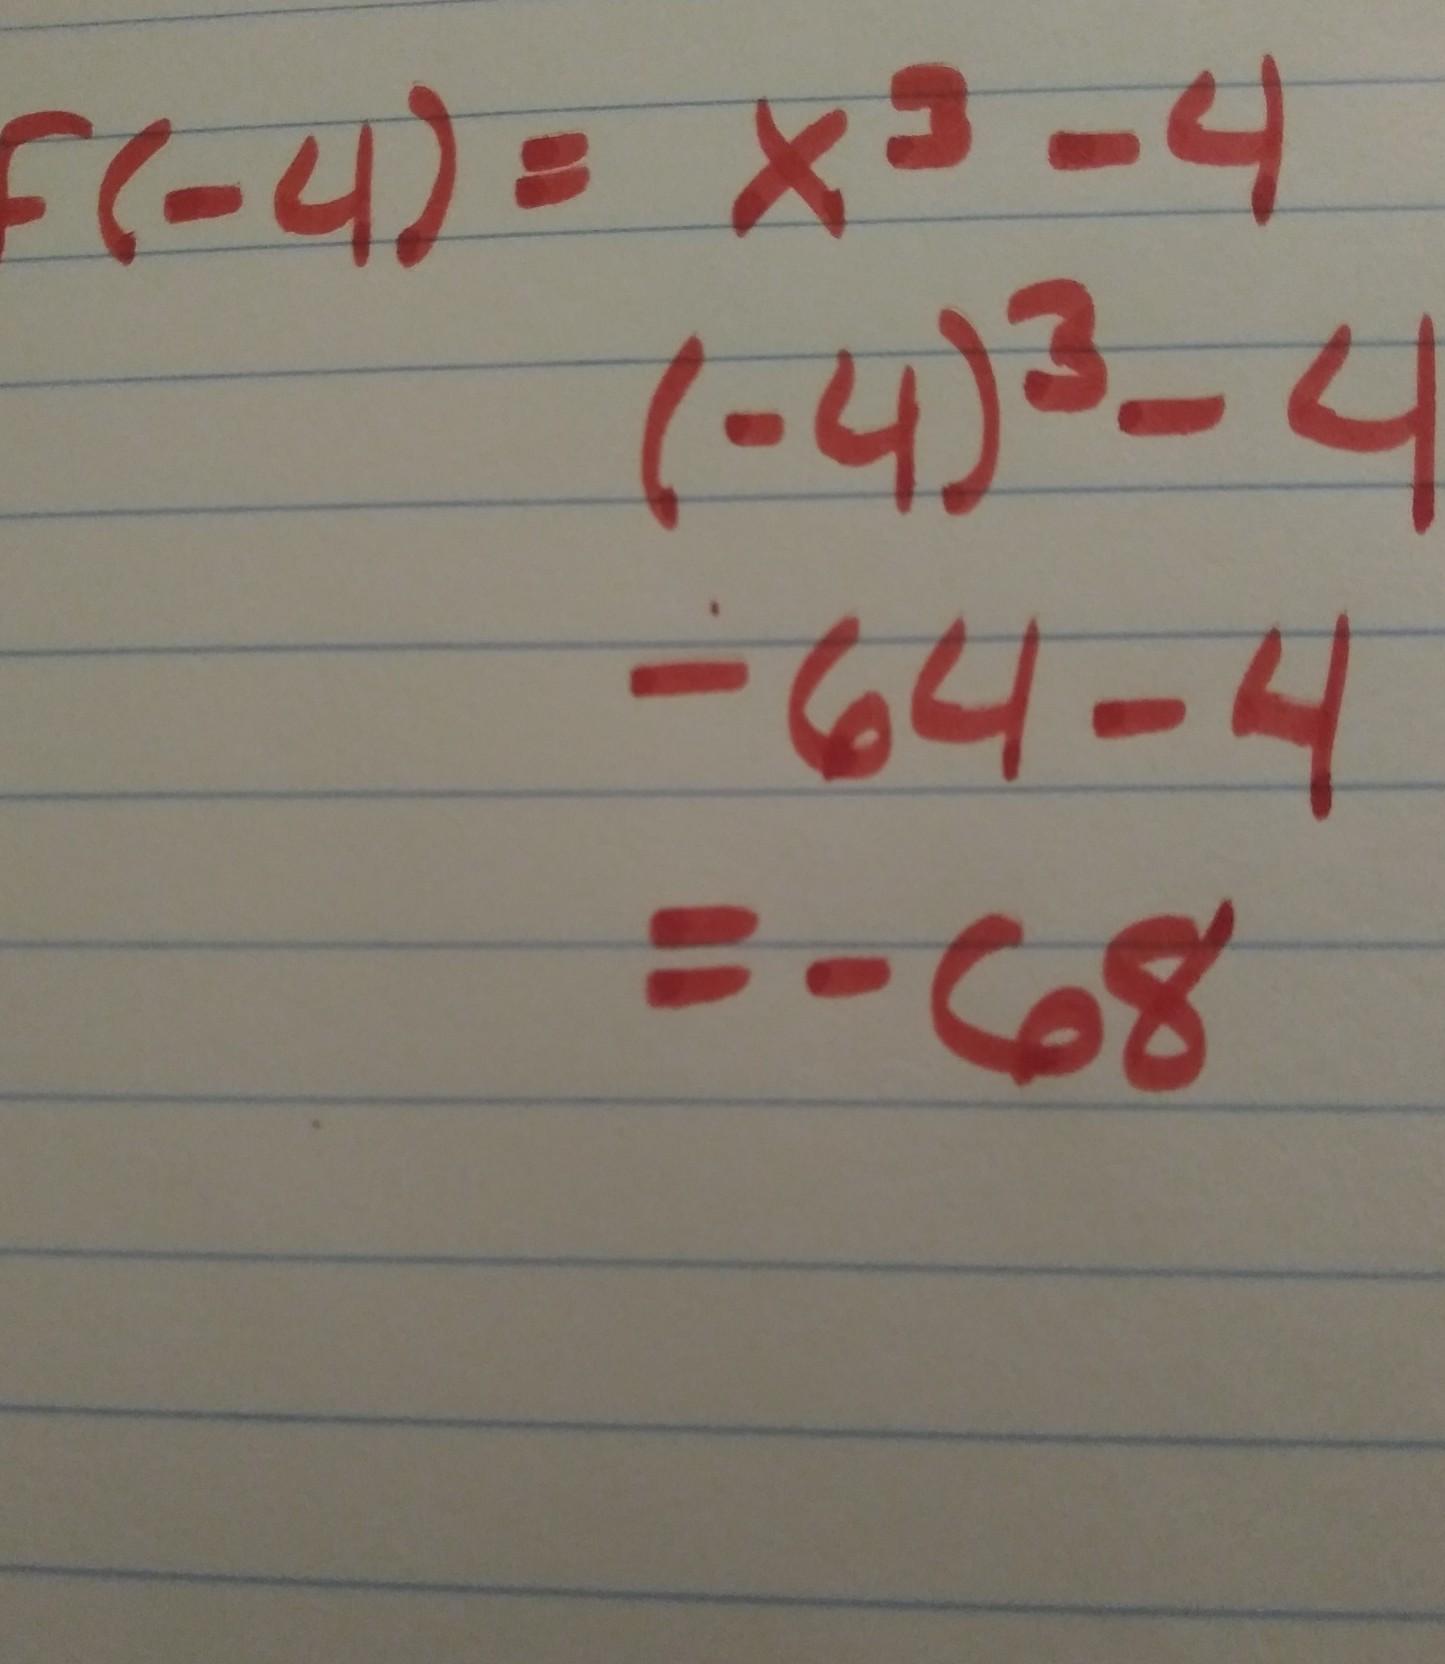 f(-4) = x³ - 4
(-4)³ - 4
-64 - 4
= -68